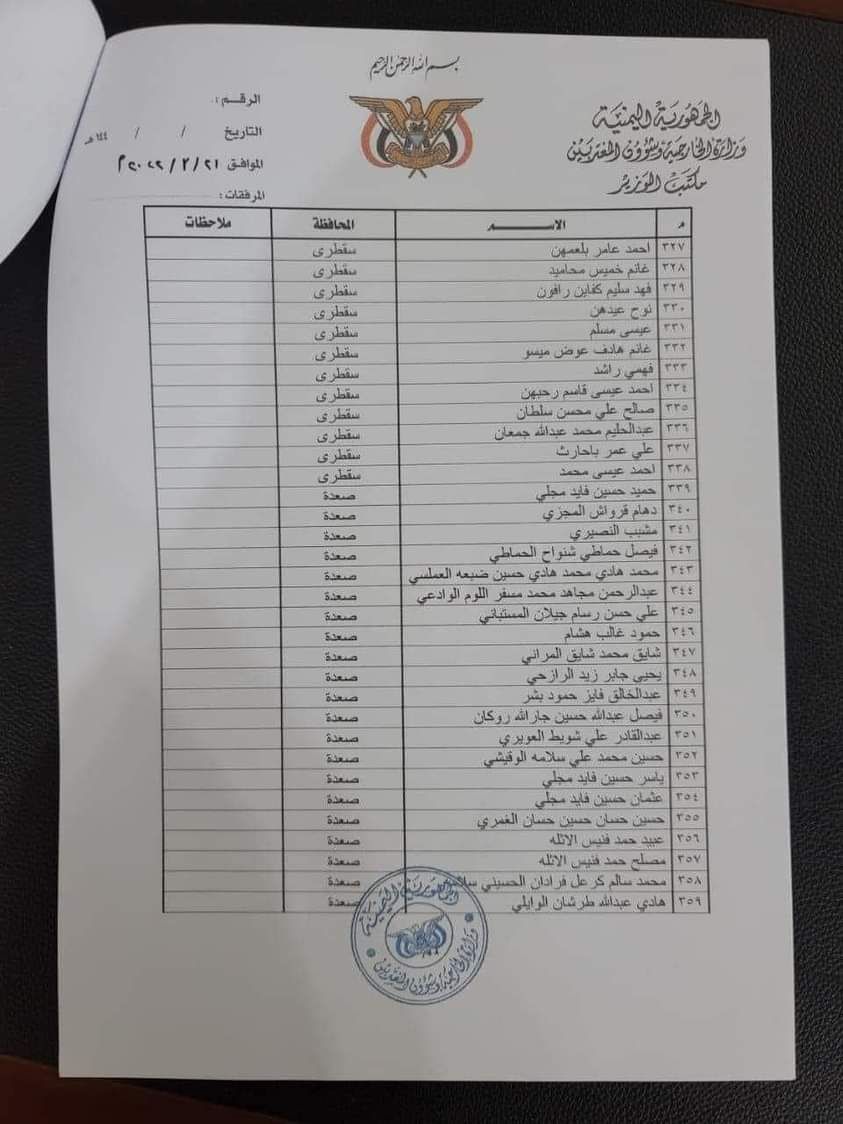 بسم الله الرحمن الرحيم
الجمهورية اليمنية
وزارة الخارجية وشؤون المغتربين
مكتب الوزير
الرقم :
التاريخ / / ١٤٤ هـ
الموافق ٢١ / ٢ / ٢٠٢٢ م
المرفقات :
م الاسم المحافظة ملاحظات
٣٢٧ احمد عامر بلعمهن سقطرى
٣٢٨ غانم خميس محاميد سقطرى
٣٢٩ فهد سليم كفاين رافون سقطرى
٣٣٠ نوح عيدهن سقطرى
٣٣١ عيسى مسلم سقطرى
٣٣٢ غانم هادف عوض ميسو سقطرى
٣٣٣ فهمي راشد سقطرى
٣٣٤ احمد عيسى قاسم رحبهن سقطرى
٣٣٥ صالح علي محسن سلطان سقطرى
٣٣٦ عبدالحليم محمد عبدالله جمعان سقطرى
٣٣٧ علي عمر باحارث سقطرى
٣٣٨ احمد عيسى محمد سقطرى
٣٣٩ حميد حسين فايد مجلي صعدة
٣٤٠ دهام قرواش المجزي صعدة
٣٤١ مشبب النصيري صعدة
٣٤٢ فيصل حماطي شنواح الحماطي صعدة
٣٤٣ محمد هادي محمد هادي حسين ضيعه العملسي صعدة
٣٤٤ عبدالرحمن مجاهد محمد مسفر اللوم الوادعي صعدة
٣٤٥ علي حسن رسام جيلان المستباني صعدة
٣٤٦ حمود غالب هشام صعدة
٣٤٧ شايق محمد شايق المراني صعدة
٣٤٨ يحيى جابر زيد الرازحي صعدة
٣٤٩ عبدالخالق فايز حمود بشر صعدة
٣٥٠ فيصل عبدالله حسين جارالله روكان صعدة
٣٥١ عبدالقادر علي شويط العويري صعدة
٣٥٢ حسين محمد علي سلامه الوقيشي صعدة
٣٥٣ ياسر حسين فايد مجلي صعدة
٣٥٤ عثمان حسين فايد مجلي صعدة
٣٥٥ حسين حسان حسين حسان الغمري صعدة
٣٥٦ عبيد حمد فنيس الاثله صعدة
٣٥٧ مصلح حمد فنيس الاثله صعدة
٣٥٨ محمد سالم كرعل فرادان الحسيني صعدة
٣٥٩ هادي عبدالله طرشان الوايلي صعدة
الجمهورية اليمنية
وزارة الخارجية وشؤون المغتربين